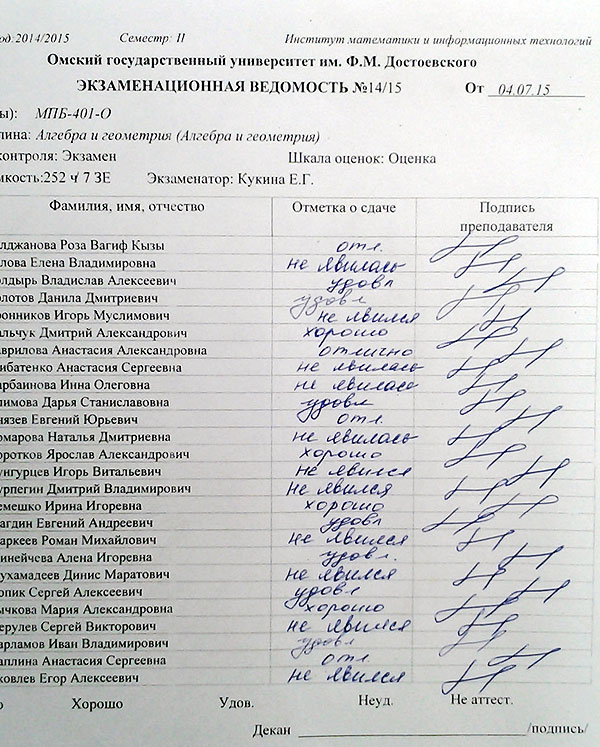 од:2014/2015 Семестр: II Институт математики и информационных технологий
Омский государственный университет им. Ф.М. Достоевского
ЭКЗАМЕНАЦИОННАЯ ВЕДОМОСТЬ №14/15 От 04.07.15
ы): МПБ-401-О
лина: Алгебра и геометрия (Алгебра и геометрия)
контроля: Экзамен Шкала оценок: Оценка
мкость:252 ч/ 7 ЗЕ Экзаменатор: Кукина Е.Г.
Фамилия, имя, отчество Отметка о сдаче Подпись
преподавателя
лджанова Роза Вагиф Кызы отл.
лова Елена Владимировна не явилась
олдырь Владислав Алексеевич удовл
олотов Данила Дмитриевич удовл
ронников Игорь Муслимович не явился
альчук Дмитрий Александрович хорошо
аврилова Анастасия Александровна отлично
ибатенко Анастасия Сергеевна не явилась
арбаинова Инна Олеговна не явилась
лимова Дарья Станиславовна удовл
нязев Евгений Юрьевич отл.
омарова Наталья Дмитриевна не явилась
оротков Ярослав Александрович хорошо
унгурцев Игорь Витальевич не явился
урпегин Дмитрий Владимирович не явился
емешко Ирина Игоревна хорошо
агдин Евгений Андреевич удовл
аркеев Роман Михайлович не явился
инейчева Алена Игоревна удовл.
ухамадеев Динис Маратович не явился
опик Сергей Алексеевич удовл
ычкова Мария Александровна хорошо
ерулев Сергей Викторович не явился
арламов Иван Владимирович удовл
аплина Анастасия Сергеевна отл.
ковлев Егор Алексеевич не явился
о Хорошо Удов. Неуд. Не аттест.
Декан /подпись/